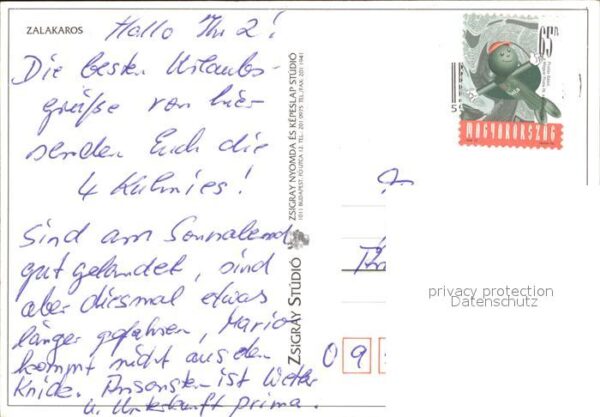 ZALAKAROS
Hallo Ihr 2!
Die besten Urlaubs-
grüße von hier
senden Euch die
4 Kuhnies!
Sind am Sonnabend
gut gelandet, sind
aber diesmal etwas
länger gefahren, Mario
kommt nicht aus den
Knick. Ansonsten ist Wetter
u. Unterkunft prima.
ZSIGRAY STÚDIÓ
ZSIGRAY NYOMDA ÉS KÉPESLAP STÚDIÓ
1011 BUDAPEST, FŐ UTCA 12. TEL: 201 0975 TEL/FAX: 201 1941
65Ft
MAGYARORSZÁG
0 9
privacy protection
Datenschutz